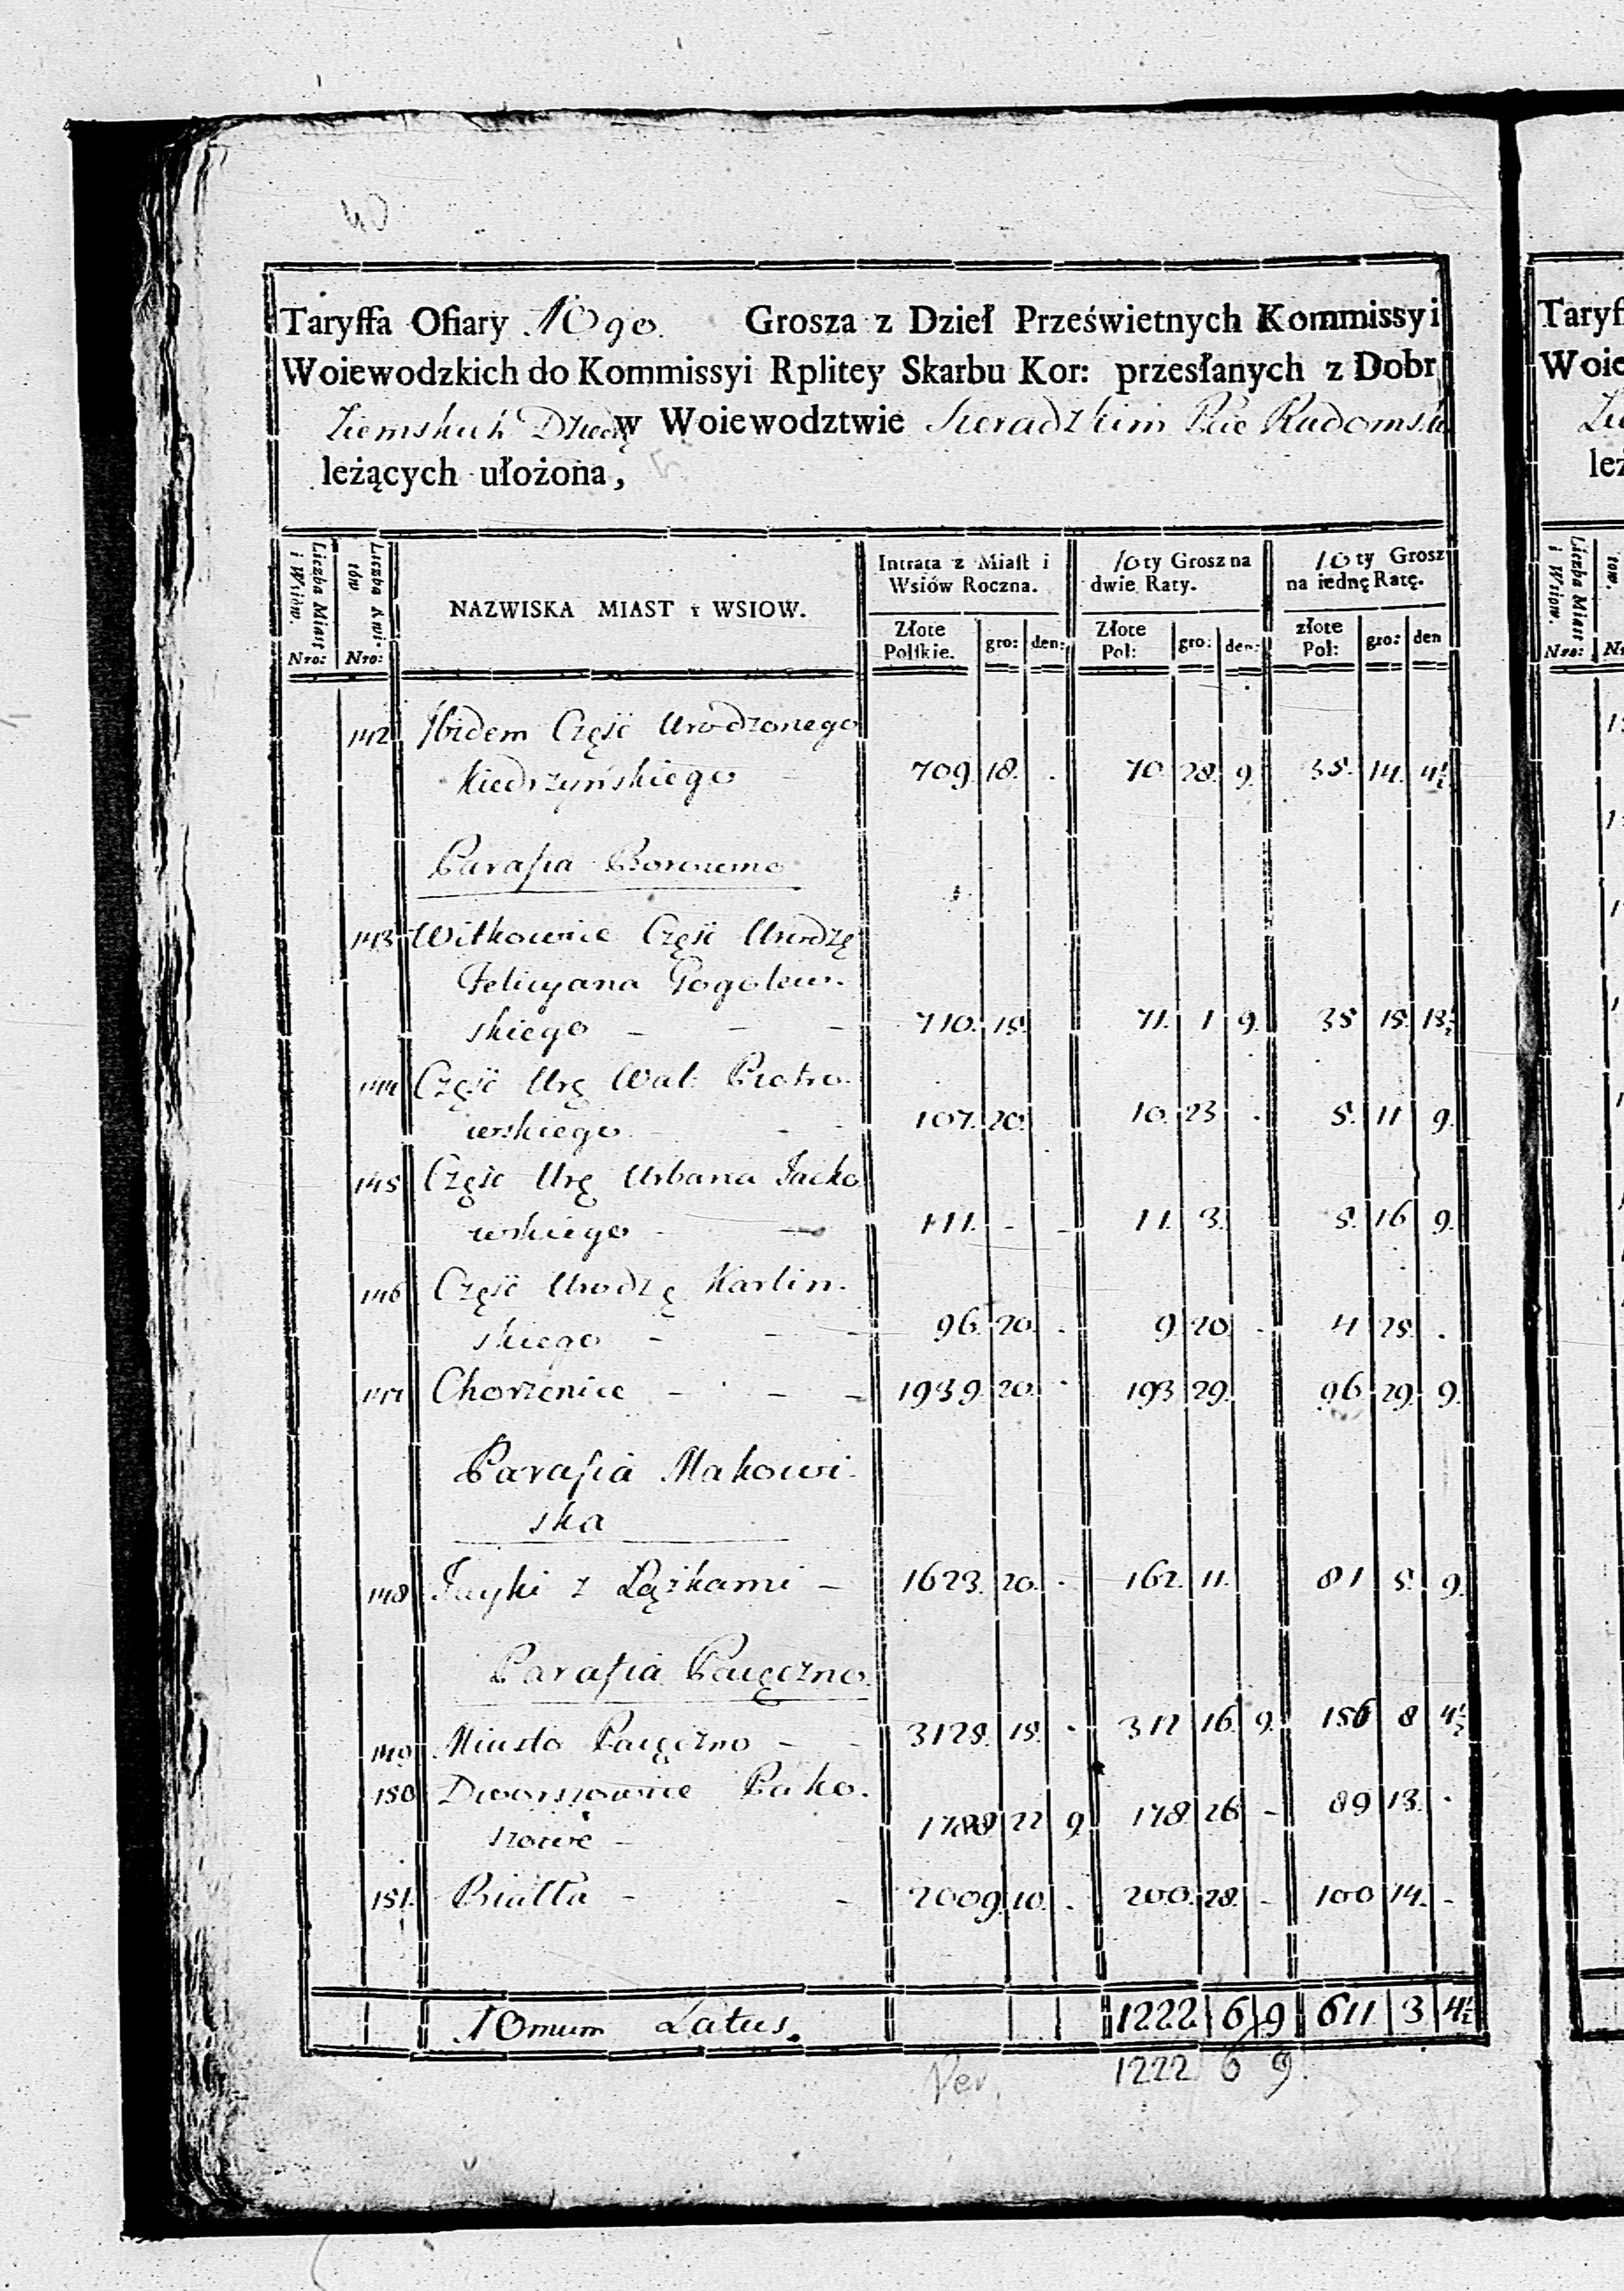 Taryffa Ofiary 10go. Grosza z Dzieł Prześwietnych Kommissyi
Woiewodzkich do Kommissyi Rplitey Skarbu Kor: przesłanych z Dobr
Ziemskich Dziedz w Woiewodztwie Sieradzkim Pcie Radomsk
leżących ułożona,
Liczba Miast i Wsiów. Nro:
Liczba Kwitów Nro:
NAZWISKA MIAST i WSIOW.
Intrata z Miast i Wsiów Roczna.
10ty Grosz na dwie Raty.
10ty Grosz na iednę Ratę.
Złote Polskie. gro: den: Złote Pol: gro: den: złote Pol: gro: den
142 Ibidem Część Urodzonego
Kiedrzyńskiego - 709. 18. . 70. 28. 9. 35. 14. 4½
Parafia Borowno
143 Witkowice Część Urodzę
Felicyana Gogolew-
skiego - - - 710. 15. 71. 1 9. 35 15. 13½
144 Część Urę Wal: Piotro-
wskiego. - - - 107. 20. 10. 23 . 5. 11 9.
145 Część Urę Urbana Jacko
wskiego - - 111. - - 11. 3. 5. 16 9.
146 Część Urodzę Karlin-
skiego - - - 96. 20. . 9. 20 . 4 25. .
147 Chorzenice - - - 1939. 20. . 193 29. 96 29. 9.
Parafia Makowi-
ska
148 Jayki z Lążkami - 1623. 20. . 162. 11. 81 5. 9.
Parafia Paięczno.
149 Miasto Paięczno - - 3125. 15. . 312 16. 9. 156 8 4½
150 Dworszowice Pako-
szowe - 1788 22 9 178 26 - 89 13. .
151. Biatta - - 2009. 10. . 200. 28. - 100 14. -
10mum Latus. 1222 6 9 611 3 4½
Ver. 1222 6 9.